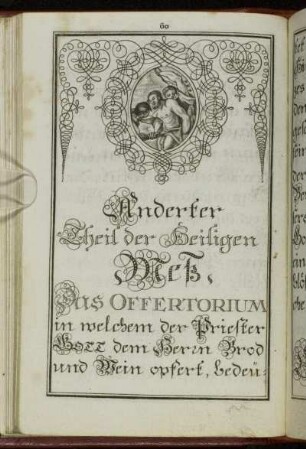 60
Anderter
Theil der Heiligen
Meß,
Das OFFERTORIUM
in welchem der Priester
GOTT dem Herrn Brod
und Wein opfert, bedeu=